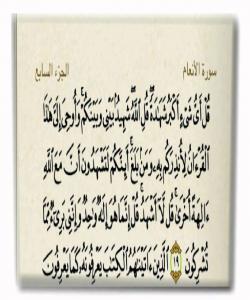 سورة الأنعام الجزء السابع
قُلْ أَىُّ شَىْءٍ أَكْبَرُ شَهَٰدَةً قُلِ ٱللَّهُ شَهِيدٌۢ بَيْنِى وَبَيْنَكُمْ وَأُوحِىَ إِلَىَّ هَٰذَا
ٱلْقُرْءَانُ لِأُنذِرَكُم بِهِۦ وَمَنۢ بَلَغَ أَئِنَّكُمْ لَتَشْهَدُونَ أَنَّ مَعَ ٱللَّهِ
ءَالِهَةً أُخْرَىٰ قُل لَّآ أَشْهَدُ قُلْ إِنَّمَا هُوَ إِلَٰهٌ وَٰحِدٌ وَإِنَّنِى بَرِىٓءٌ مِّمَّا
تُشْرِكُونَ ١٩ ٱلَّذِينَ ءَاتَيْنَٰهُمُ ٱلْكِتَٰبَ يَعْرِفُونَهُۥ كَمَا يَعْرِفُونَ